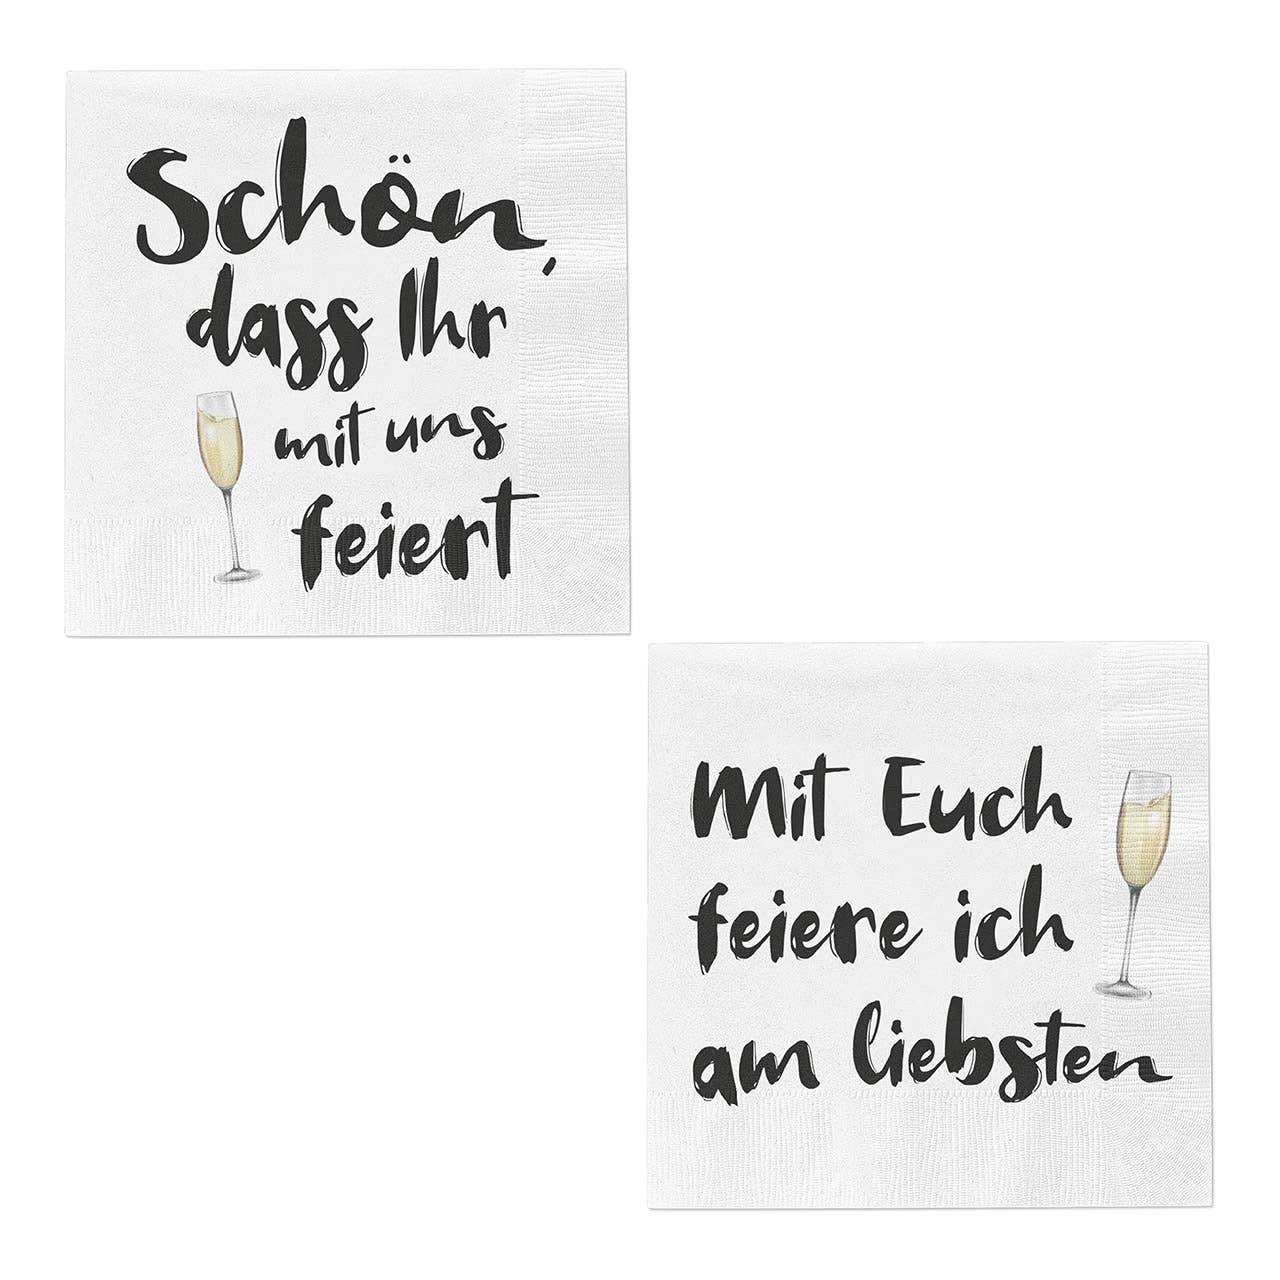 Schön,
dass Ihr
mit uns
feiert
Mit Euch
feiere ich
am liebsten